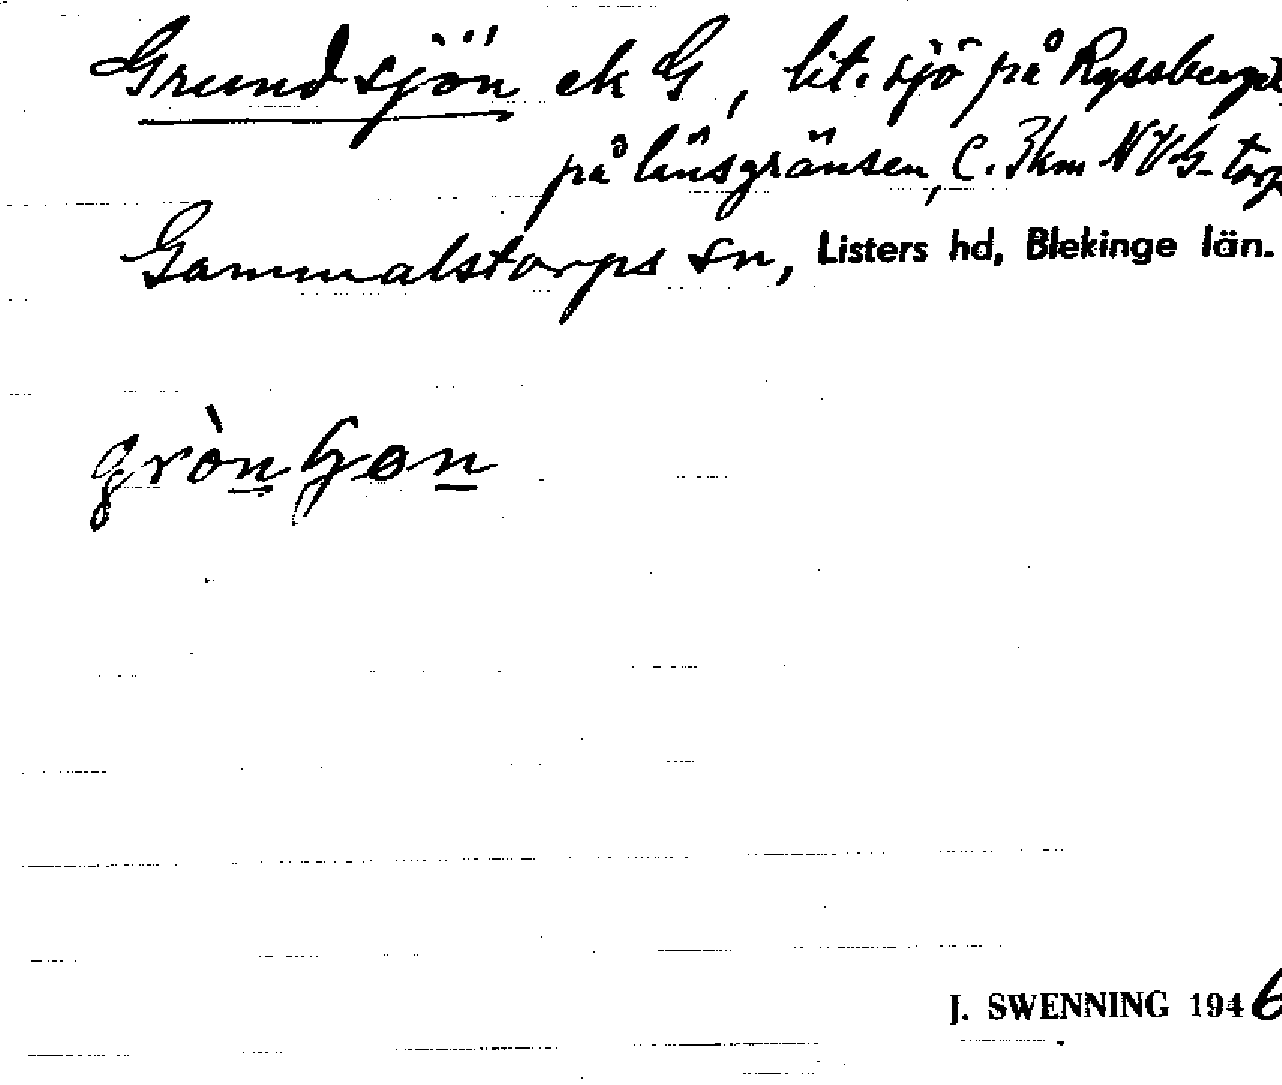 Grundsjön ek G, lit. sjö på Ryssberget
på länsgränsen, c. 3 km NV G-torp
Gammalstorps sn, Listers hd, Blekinge län.
J. SWENNING 1946